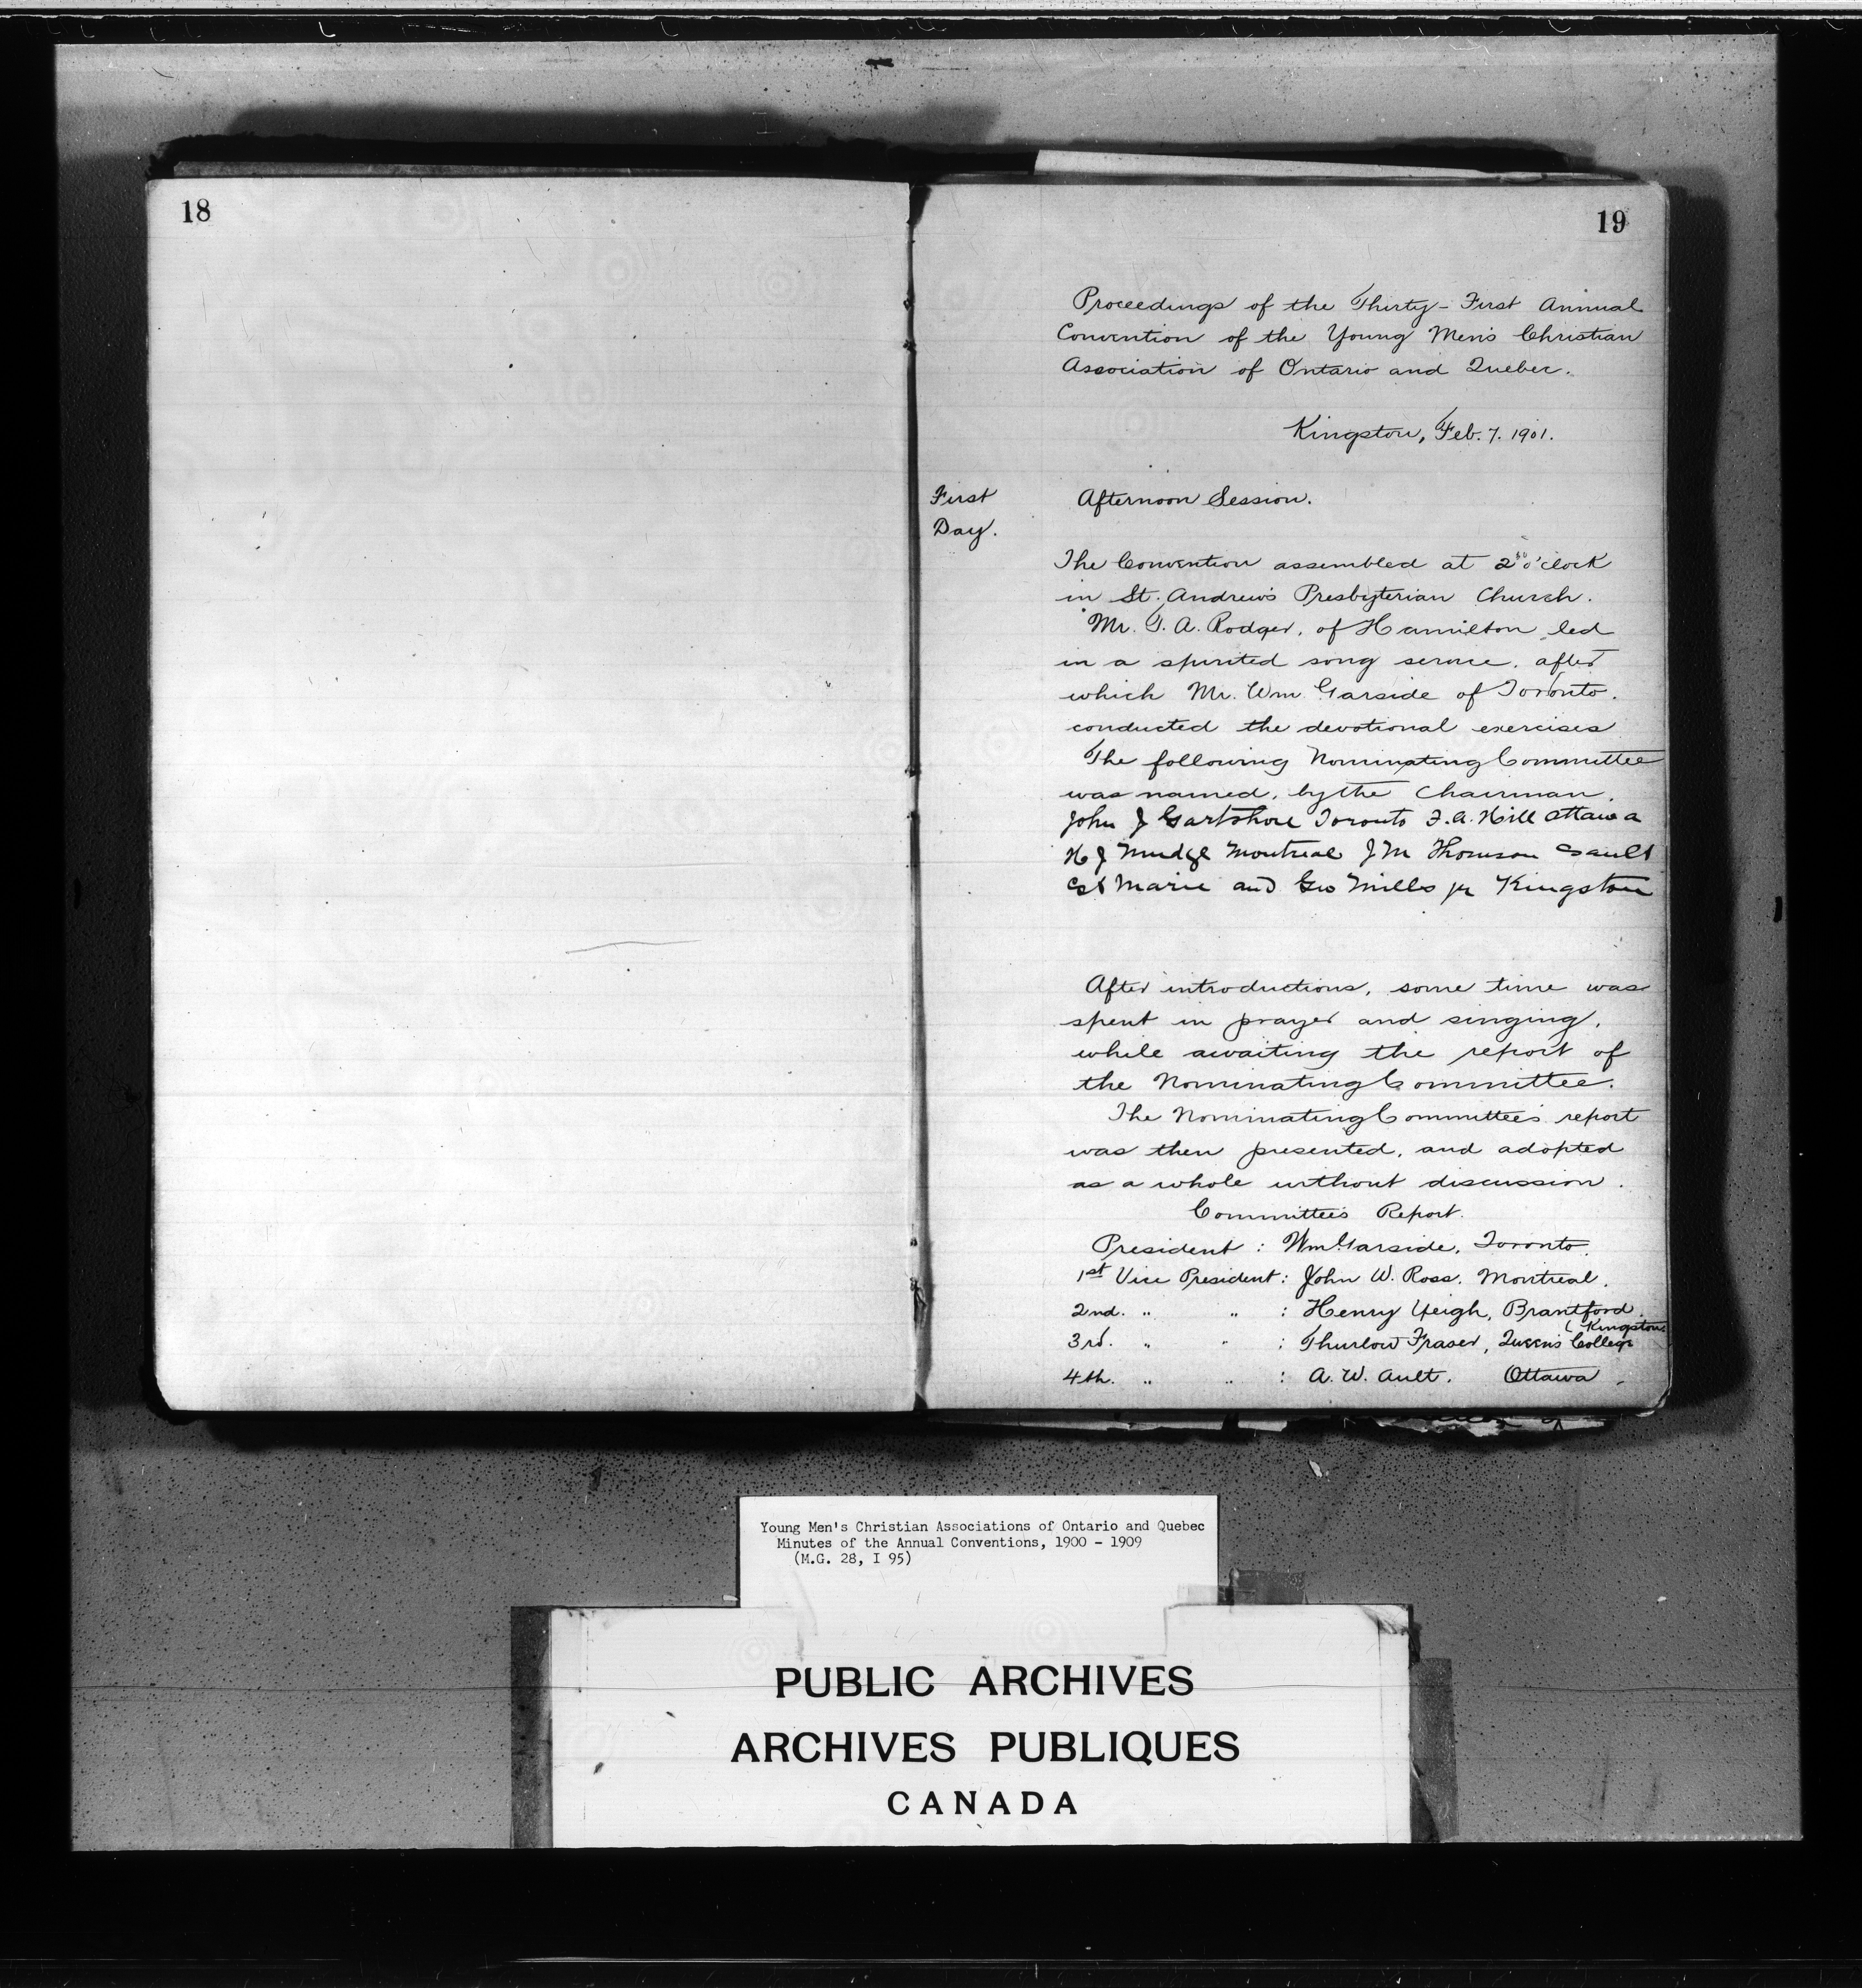 18
19
Proceedings of the Thirty-First Annual
Convention of the Young Men's Christian
Association of Ontario and Quebec.
Kingston, Feb. 7. 1901.
First
Day.
Afternoon Session.
The Convention assembled at 2³⁰ o'clock
in St. Andrew's Presbyterian Church.
Mr. T. A. Rodger, of Hamilton led
in a spirited song service, after
which Mr. Wm Garside of Toronto.
conducted the devotional exercises
The following Nominating Committee
was named, by the Chairman.
John J Gartshore Toronto F. A. Hill Ottawa
H J Mudge Montreal J M Thomson Sault
St Marie and Geo Mills jr Kingston
After introductions, some time was
spent in prayer and singing,
while awaiting the report of
the Nominating Committee.
The Nominating Committee's report
was then presented, and adopted
as a whole without discussion.
Committee's Report.
President : Wm Garside, Toronto.
1st Vice President : John W. Ross. Montreal.
2nd. " " : Henry Yeigh, Brantford.
( Kingston
3rd. " " : Thurlow Fraser, Queen's College
4th. " " : A. W. Ault. Ottawa.
Young Men's Christian Associations of Ontario and Quebec
Minutes of the Annual Conventions, 1900 - 1909
(M.G. 28, I 95)
PUBLIC ARCHIVES
ARCHIVES PUBLIQUES
CANADA